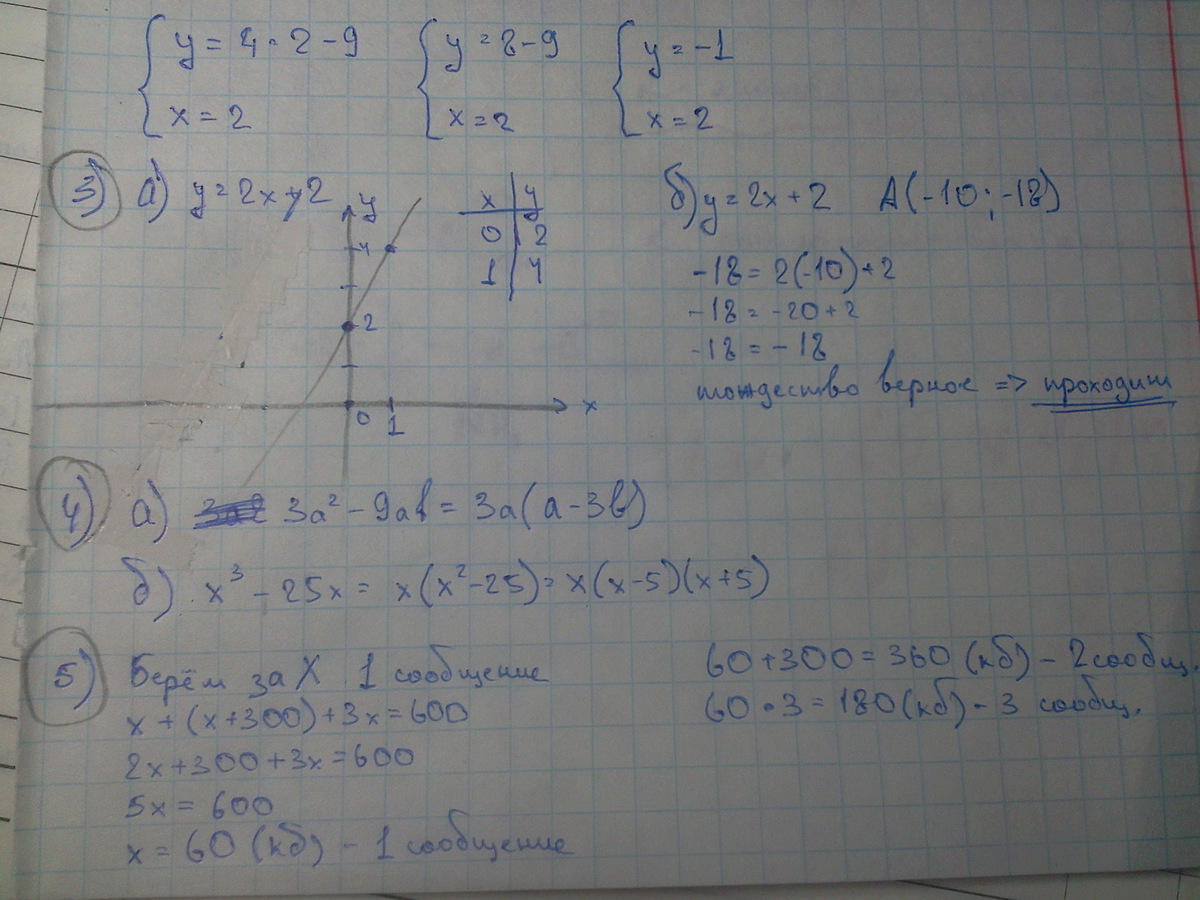 { y = 4 · 2 - 9   { y = 8 - 9   { y = -1
x = 2   x = 2   x = 2
3) а) y = 2x + 2
y
4
2
0 1 x
x | y
0 | 2
1 | 4
б) y = 2x + 2   A(-10; -18)
-18 = 2(-10) + 2
-18 = -20 + 2
-18 = -18
тождество верное => проходит
4) а) 3a² - 9ab = 3a(a - 3b)
б) x³ - 25x = x(x² - 25) = x(x - 5)(x + 5)
5) Берём за X 1 сообщение
x + (x + 300) + 3x = 600
2x + 300 + 3x = 600
5x = 600
x = 60 (кб) - 1 сообщение
60 + 300 = 360 (кб) - 2 сообщ.
60 · 3 = 180 (кб) - 3 сообщ.